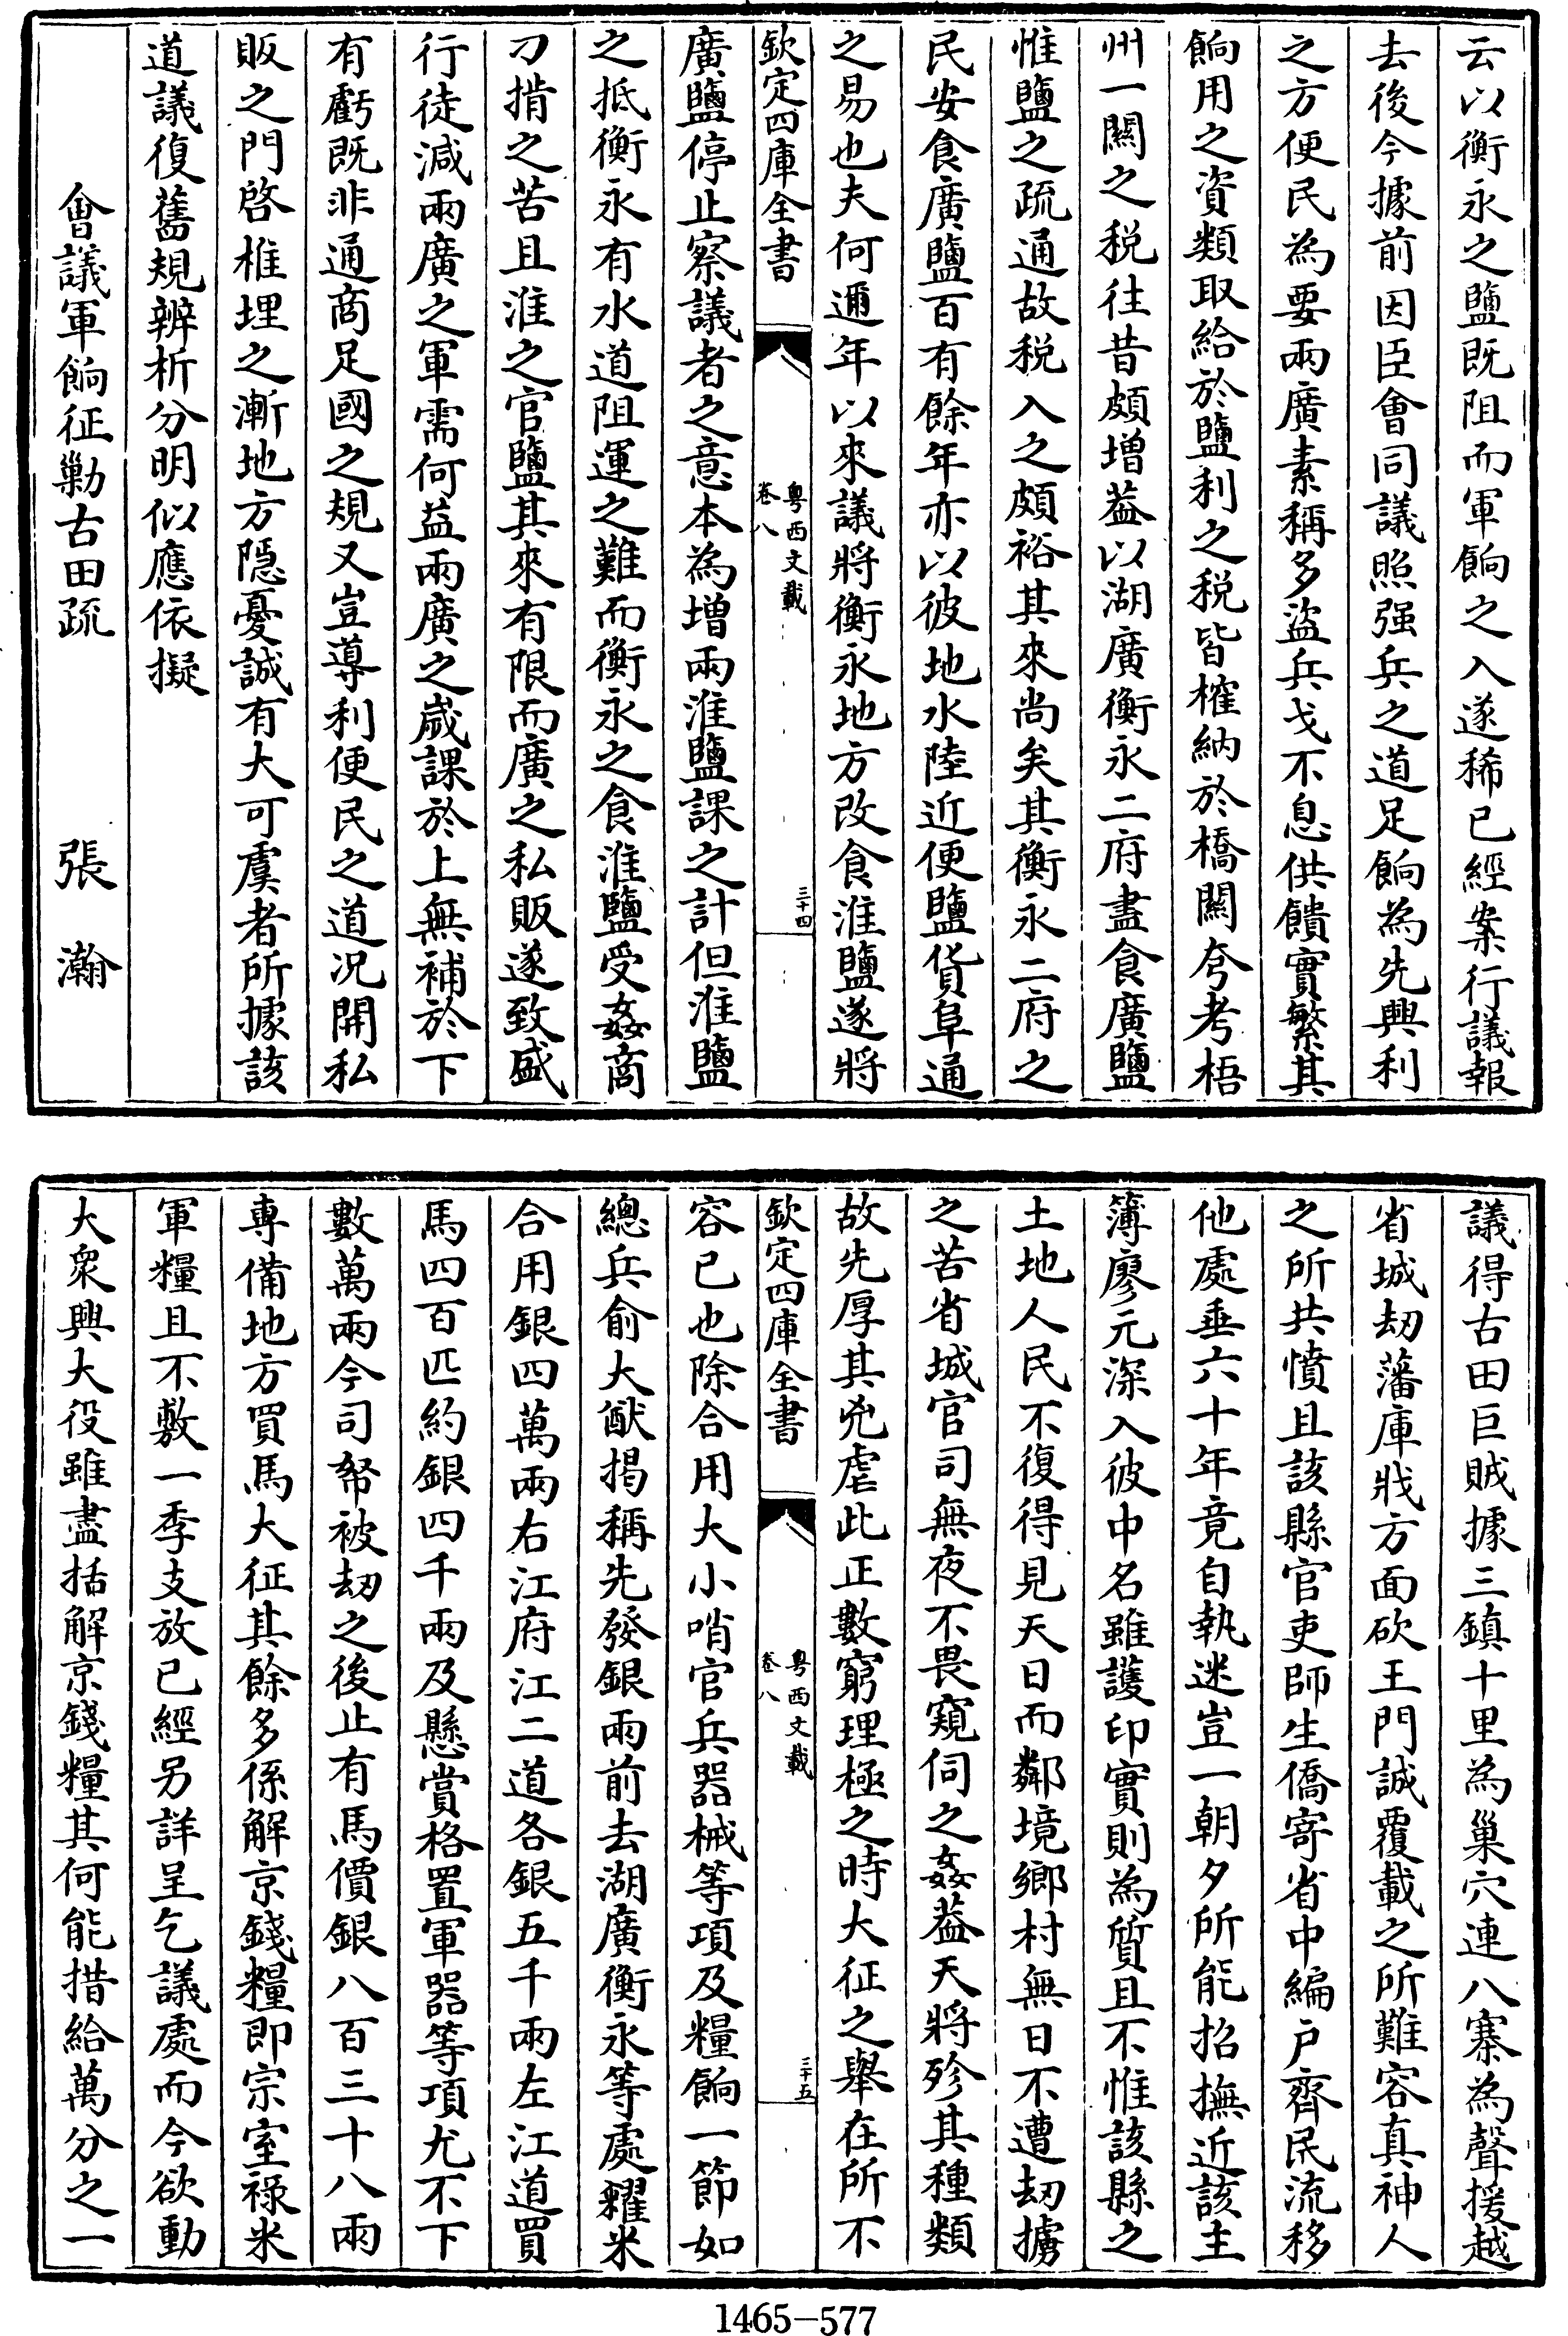 云以衡永之鹽既阻而軍餉之入遂稀已經案行議報
去後今據前因臣會同議照强兵之道足餉為先興利
之方便民為要兩廣素稱多盜兵戈不息供饋實繁其
餉用之資類取給於鹽利之税皆榷納於橋關兮考梧
州一關之税往昔頗增葢以湖廣衡永二府盡食廣鹽
惟鹽之疏通故税入之頗裕其來尚矣其衡永二府之
民安食廣鹽百有餘年亦以彼地水陸近便鹽貨阜通
之易也夫何邇年以來議將衡永地方改食淮鹽遂將
欽定四庫全書
粤西文載
卷八
三十四
廣鹽停止察議者之意本為增兩淮鹽課之計但淮鹽
之抵衡永有水道阻運之難而衡永之食淮鹽受姦商
刁掯之苦且淮之官鹽其來有限而廣之私販遂致盛
行徒減兩廣之軍需何益兩廣之歲課於上無補於下
有虧既非通商足國之規又豈導利便民之道况開私
販之門啓椎埋之漸地方隠憂誠有大可虞者所據該
道議復舊規辨析分明似應依擬
會議軍餉征勦古田疏
張瀚
議得古田巨賊據三鎮十里為巢穴連八寨為聲援越
省城刼藩庫戕方面砍王門誠覆載之所難容真神人
之所共憤且該縣官吏師生僑寄省中編户齊民流移
他處垂六十年竟自執迷豈一朝夕所能招撫近該主
簿廖元深入彼中名雖護印實則為質且不惟該縣之
土地人民不復得見天日而鄰境鄉村無日不遭刼擄
之苦省城官司無夜不畏窺伺之姦葢天將殄其種類
故先厚其兇虐此正數窮理極之時大征之舉在所不
欽定四庫全書
粤西文載
卷八
三十五
容已也除合用大小哨官兵器械等項及糧餉一節如
總兵俞大猷揭稱先發銀兩前去湖廣衡永等處糴米
合用銀四萬兩右江府江二道各銀五千兩左江道買
馬四百匹約銀四千兩及懸賞格置軍器等項尤不下
數萬兩今司帑被刼之後止有馬價銀八百三十八兩
專備地方買馬大征其餘多係解京錢糧即宗室禄米
軍糧且不敷一季支放已經另詳呈乞議處而今欲動
大衆興大役雖盡括解京錢糧其何能措給萬分之一
1465-577